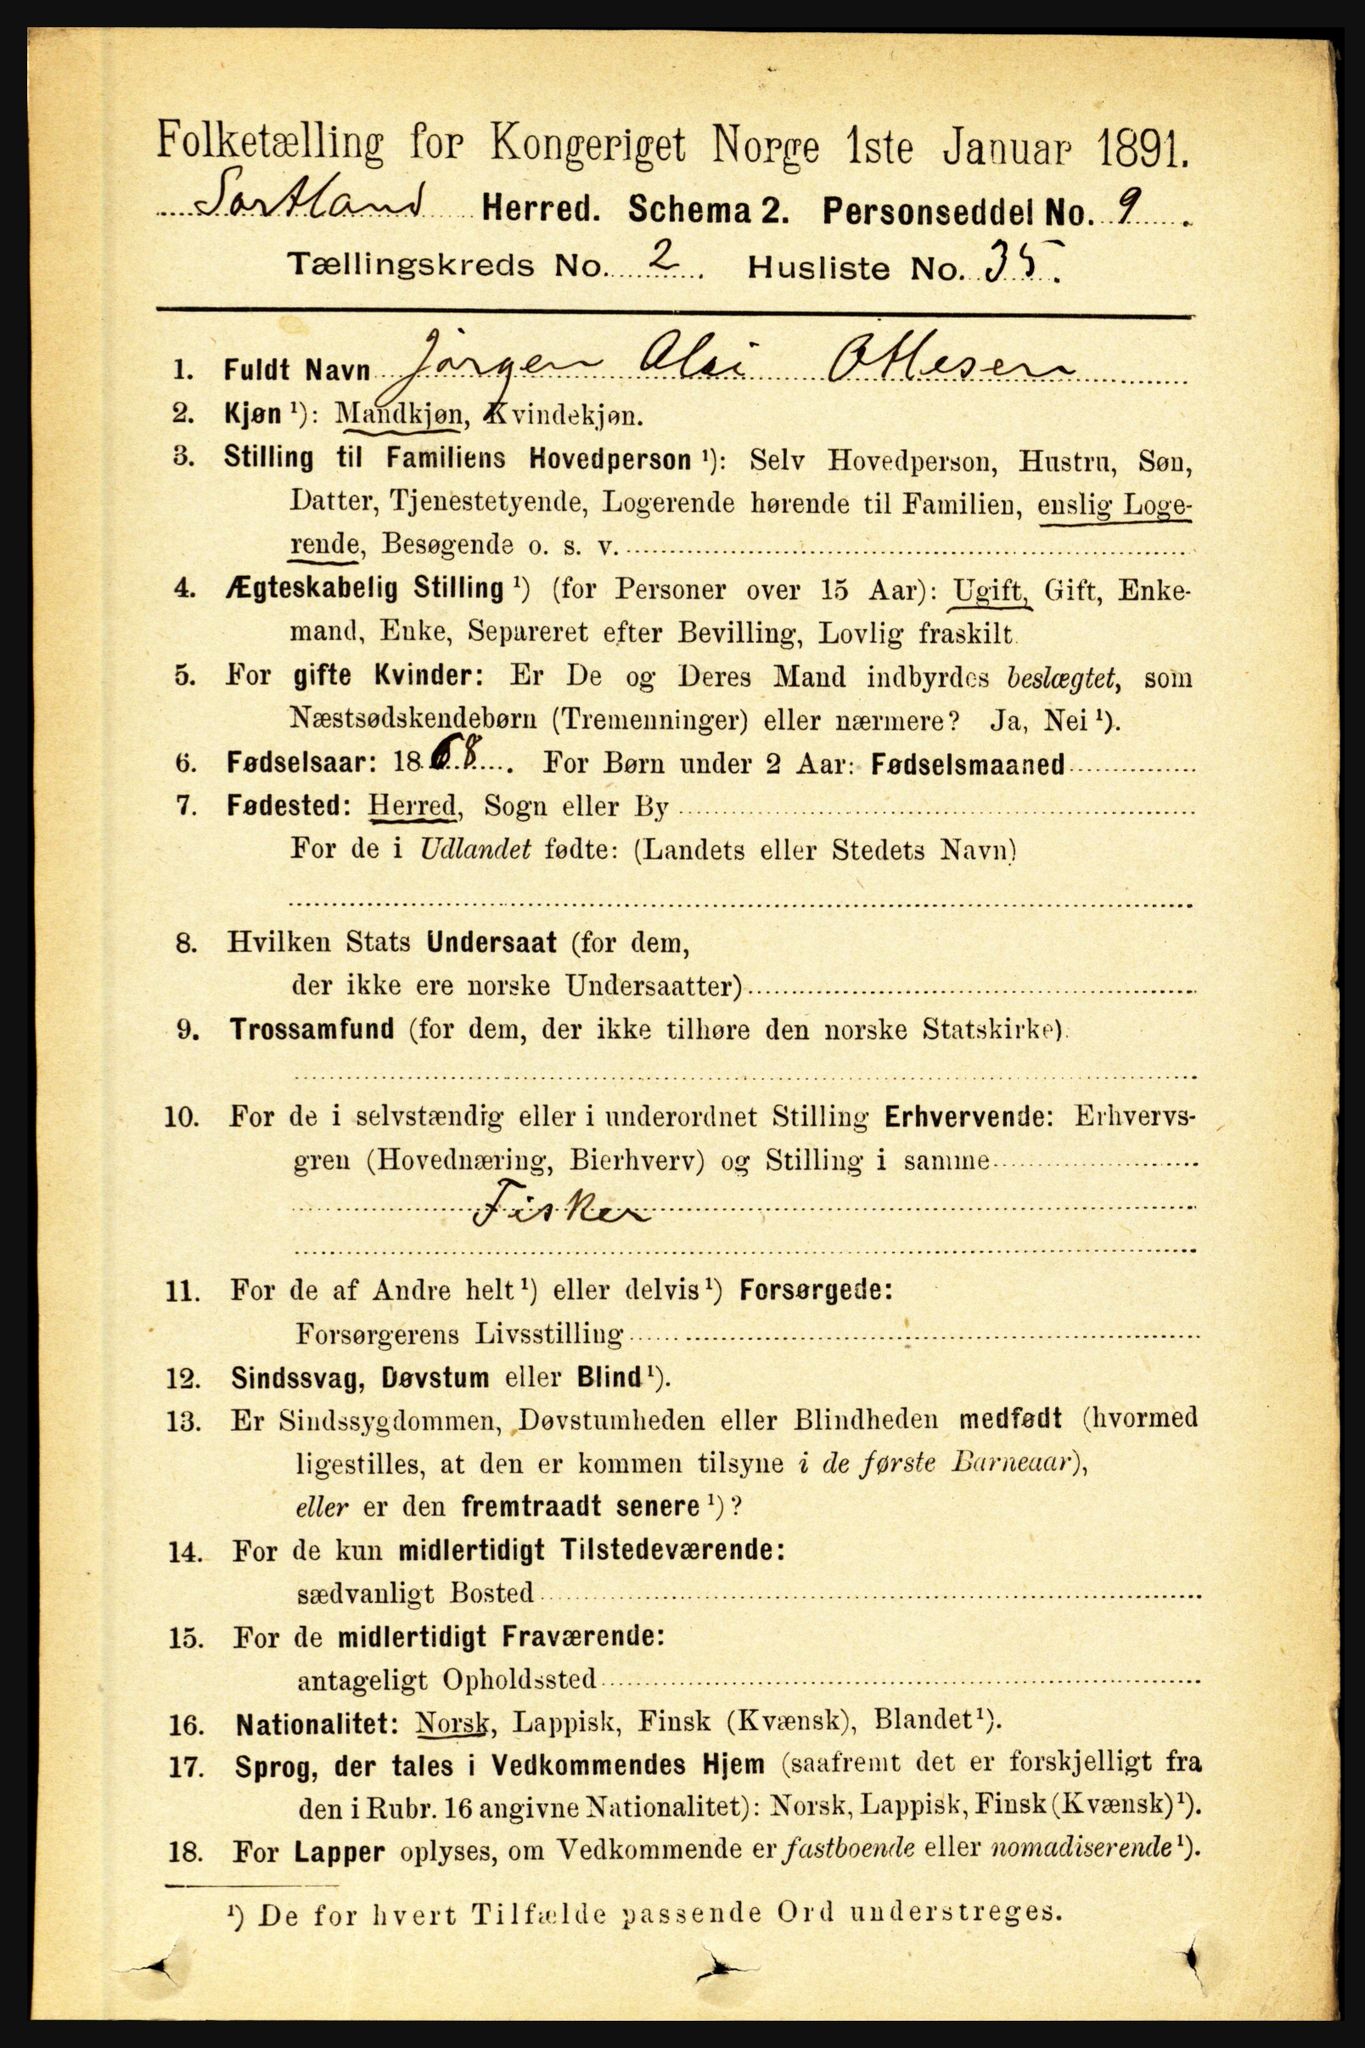 Folketælling for Kongeriget Norge 1ste Januar 1891.
Sortland Herred. Schema 2. Personseddel No. 9.
Tællingskreds No. 2. Husliste No. 35.
1. Fuldt Navn Jörgen Olai Ottesen
2. Kjøn ¹): Mandkjøn, Kvindekjøn.
3. Stilling til Familiens Hovedperson ¹): Selv Hovedperson, Hustru, Søn,
Datter, Tjenestetyende, Logerende hørende til Familien, enslig Loge-
rende, Besøgende o. s. v.
4. Ægteskabelig Stilling ¹) (for Personer over 15 Aar): Ugift, Gift, Enke-
mand, Enke, Separeret efter Bevilling, Lovlig fraskilt.
5. For gifte Kvinder: Er De og Deres Mand indbyrdes beslægtet, som
Næstsødskendebørn (Tremenninger) eller nærmere? Ja, Nei ¹).
6. Fødselsaar: 1868. For Børn under 2 Aar: Fødselsmaaned
7. Fødested: Herred, Sogn eller By
For de i Udlandet fødte: (Landets eller Stedets Navn)
8. Hvilken Stats Undersaat (for dem,
der ikke ere norske Undersaatter)
9. Trossamfund (for dem, der ikke tilhøre den norske Statskirke).
10. For de i selvstændig eller i underordnet Stilling Erhvervende: Erhvervs-
gren (Hovednæring, Bierhverv) og Stilling i samme
Fisker
11. For de af Andre helt ¹) eller delvis ¹) Forsørgede:
Forsørgerens Livsstilling
12. Sindssvag, Døvstum eller Blind ¹).
13. Er Sindssygdommen, Døvstumheden eller Blindheden medfødt (hvormed
ligestilles, at den er kommen tilsyne i de første Barneaar),
eller er den fremtraadt senere ¹)?
14. For de kun midlertidigt Tilstedeværende:
sædvanligt Bosted
15. For de midlertidigt Fraværende:
antageligt Opholdssted
16. Nationalitet: Norsk, Lappisk, Finsk (Kvænsk), Blandet ¹).
17. Sprog, der tales i Vedkommendes Hjem (saafremt det er forskjelligt fra
den i Rubr. 16 angivne Nationalitet): Norsk, Lappisk, Finsk (Kvænsk) ¹).
18. For Lapper oplyses, om Vedkommende er fastboende eller nomadiserende ¹).
¹) De for hvert Tilfælde passende Ord understreges.